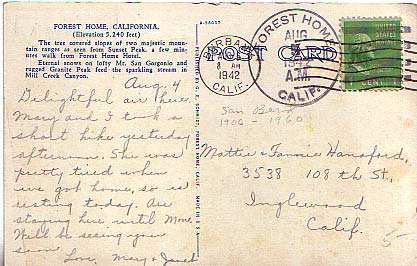 FOREST HOME, CALIFORNIA,
(Elevation 5,240 feet)
The tree covered slopes of two majestic moun-
tain ranges as seen from Sunset Peak, a few min-
utes walk from Forest Home Hotel.
Eternal snows on lofty Mt. San Gorgonio and
rugged Granite Peak feed the sparkling stream in
Mill Creek Canyon.
Aug. 4
Delightful air here.
Mary and I took a
short hike yesterday
afternoon. She was
pretty tired when
we got home, so is
resting today. Are
staying here until Mon.
Will be seeing you
soon
Love, Mary & Janet
POST CARD
AUG
8 AM
1942
CALIF.
FOREST HOME
AUG
1942
A.M.
CALIF.
San Ber
1906 - 1960
Mattie & Fannie Hansford,
3538 108th St.,
Inglewood
Calif.
5-